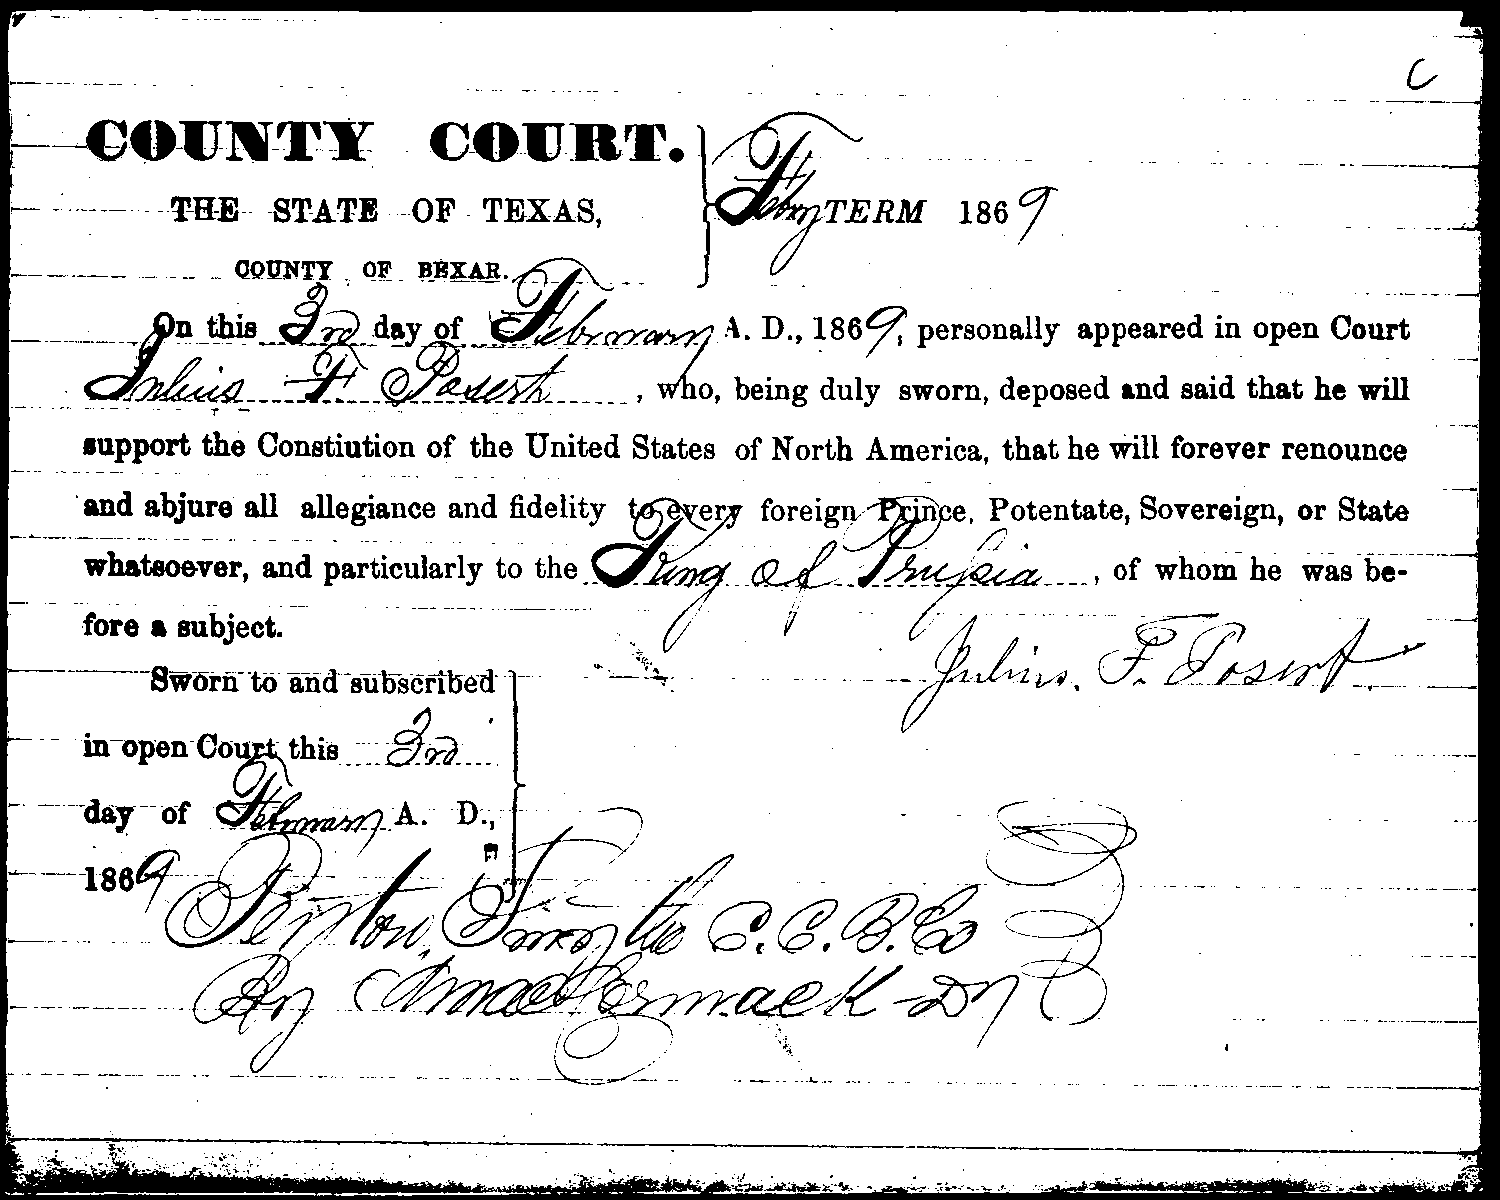 C
COUNTY COURT.
THE STATE OF TEXAS,
COUNTY OF BEXAR.
Febry TERM 1869
On this 3rd day of February A. D., 1869, personally appeared in open Court
Julius F. Posert, who, being duly sworn, deposed and said that he will
support the Constiution of the United States of North America, that he will forever renounce
and abjure all allegiance and fidelity to every foreign Prince, Potentate, Sovereign, or State
whatsoever, and particularly to the King of Prussia, of whom he was be-
fore a subject.
Julius. F. Posert
Sworn to and subscribed
in open Court this 3rd
day of February A. D.,
1869
Peyton Smythe C. C. B. Co
By MacCormack Dy